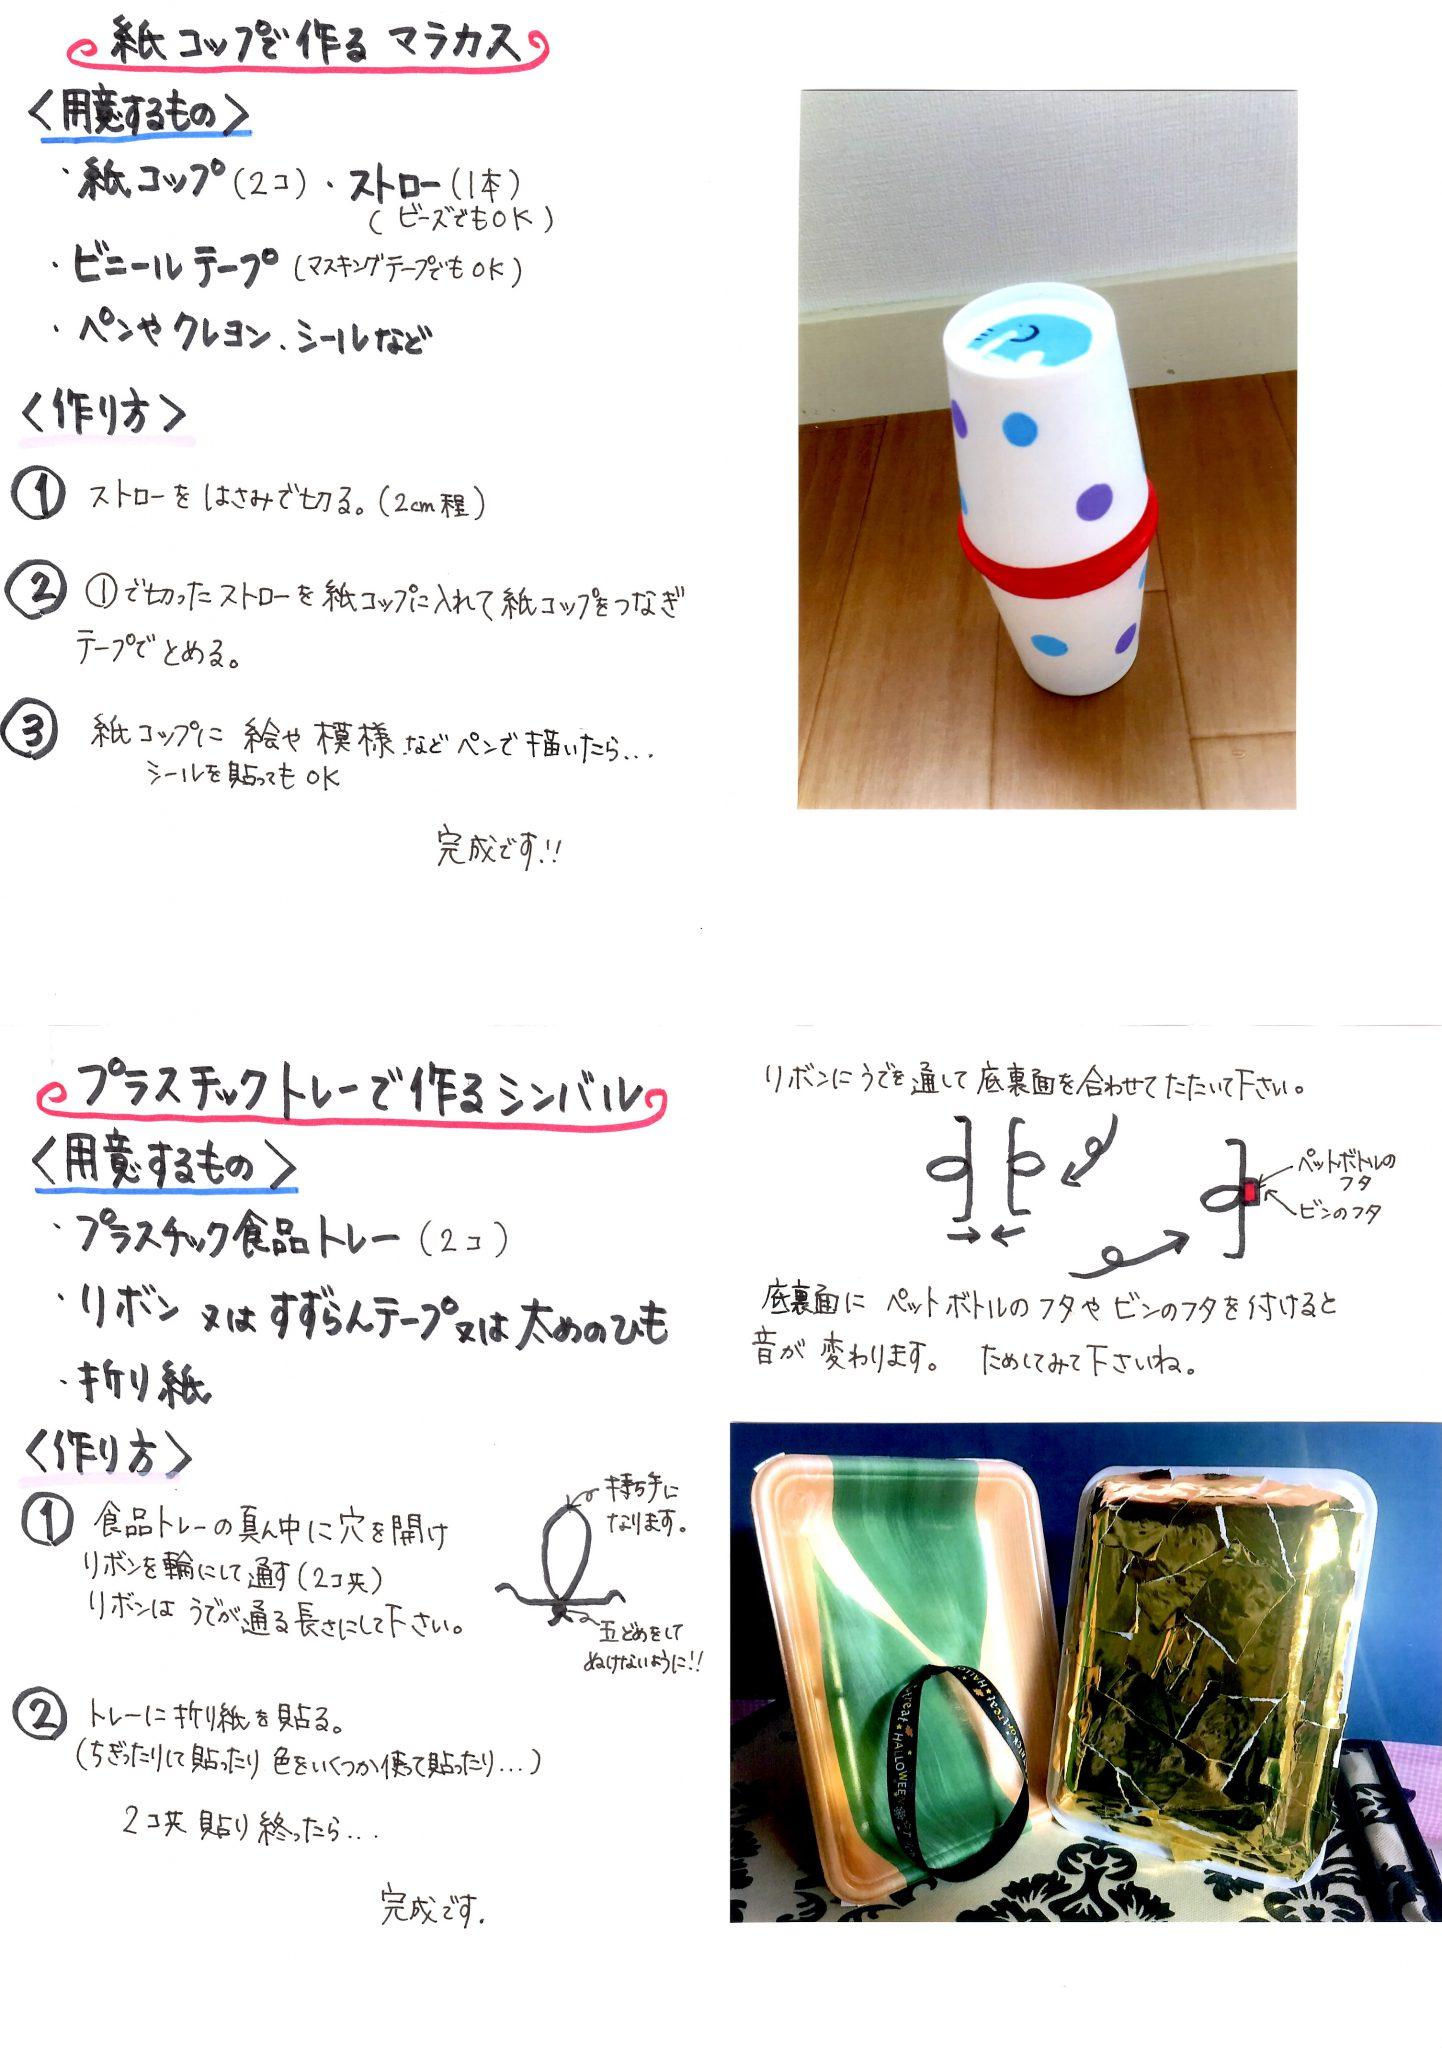 紙コップで作るマラカス
<用意するもの>
・紙コップ(2コ)・ストロー(1本)
(ビーズでもOK)
・ビニールテープ(マスキングテープでもOK)
・ペンやクレヨン、シールなど
<作り方>
① ストローをはさみで切る。(2cm程)
② ①で切ったストローを紙コップに入れて紙コップをつなぎ
テープでとめる。
③ 紙コップに絵や模様などペンで描いたら...
シールを貼ってもOK
完成です!!
プラスチックトレーで作るシンバル
<用意するもの>
・プラスチック食品トレー(2コ)
・リボン又はすずらんテープ又は太めのひも
・折り紙
<作り方>
① 食品トレーの真ん中に穴を開け
リボンを輪にして通す(2コ共)
リボンはうでが通る長さにして下さい。
持ち手に
なります。
玉どめをして
ぬけないように!!
② トレーに折り紙を貼る。
(ちぎったりして貼ったり色をいくつか使って貼ったり...)
2コ共貼り終ったら...
完成です.
リボンにうでを通して底裏面を合わせてたたいて下さい。
ペットボトルの
フタ
ビンのフタ
底裏面にペットボトルのフタやビンのフタを付けると
音が変わります。 ためしてみて下さいね。
HALLOWEE
HALLO